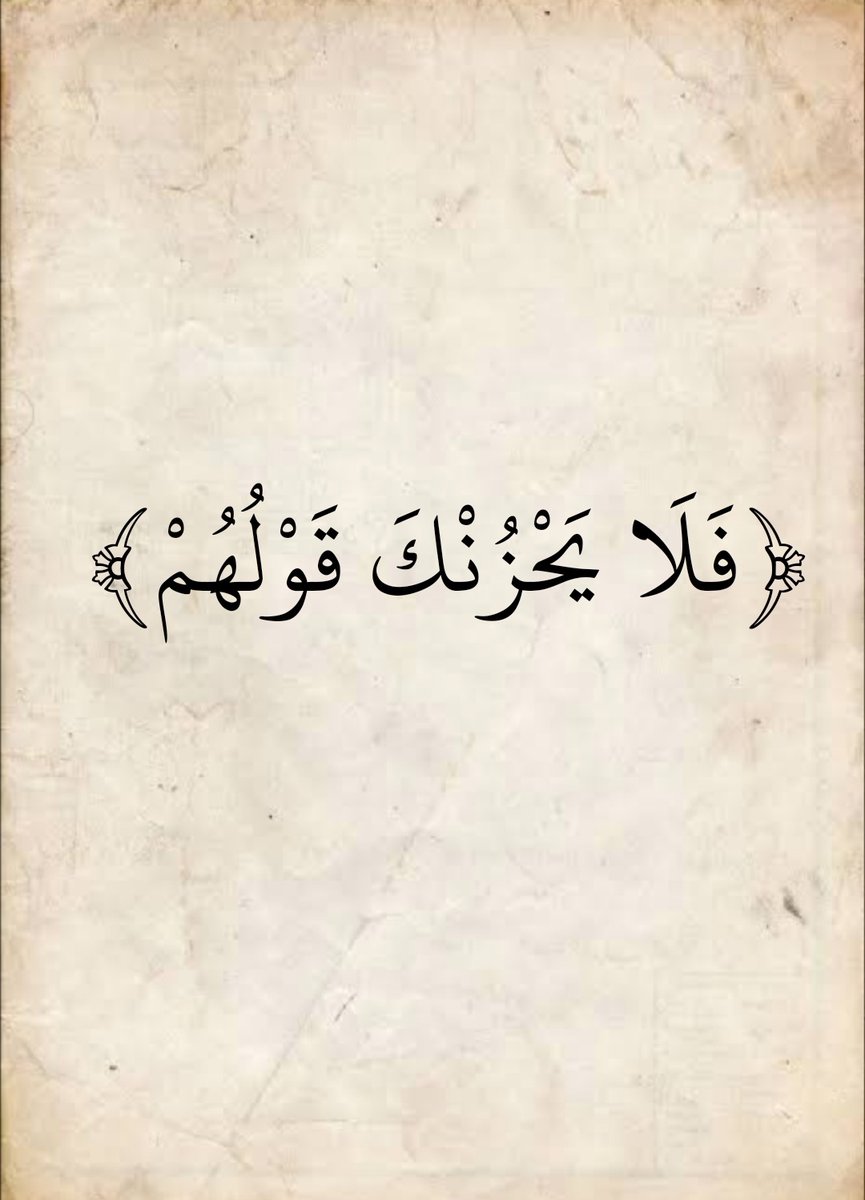 ﴿فَلَا يَحْزُنْكَ قَوْلُهُمْ﴾